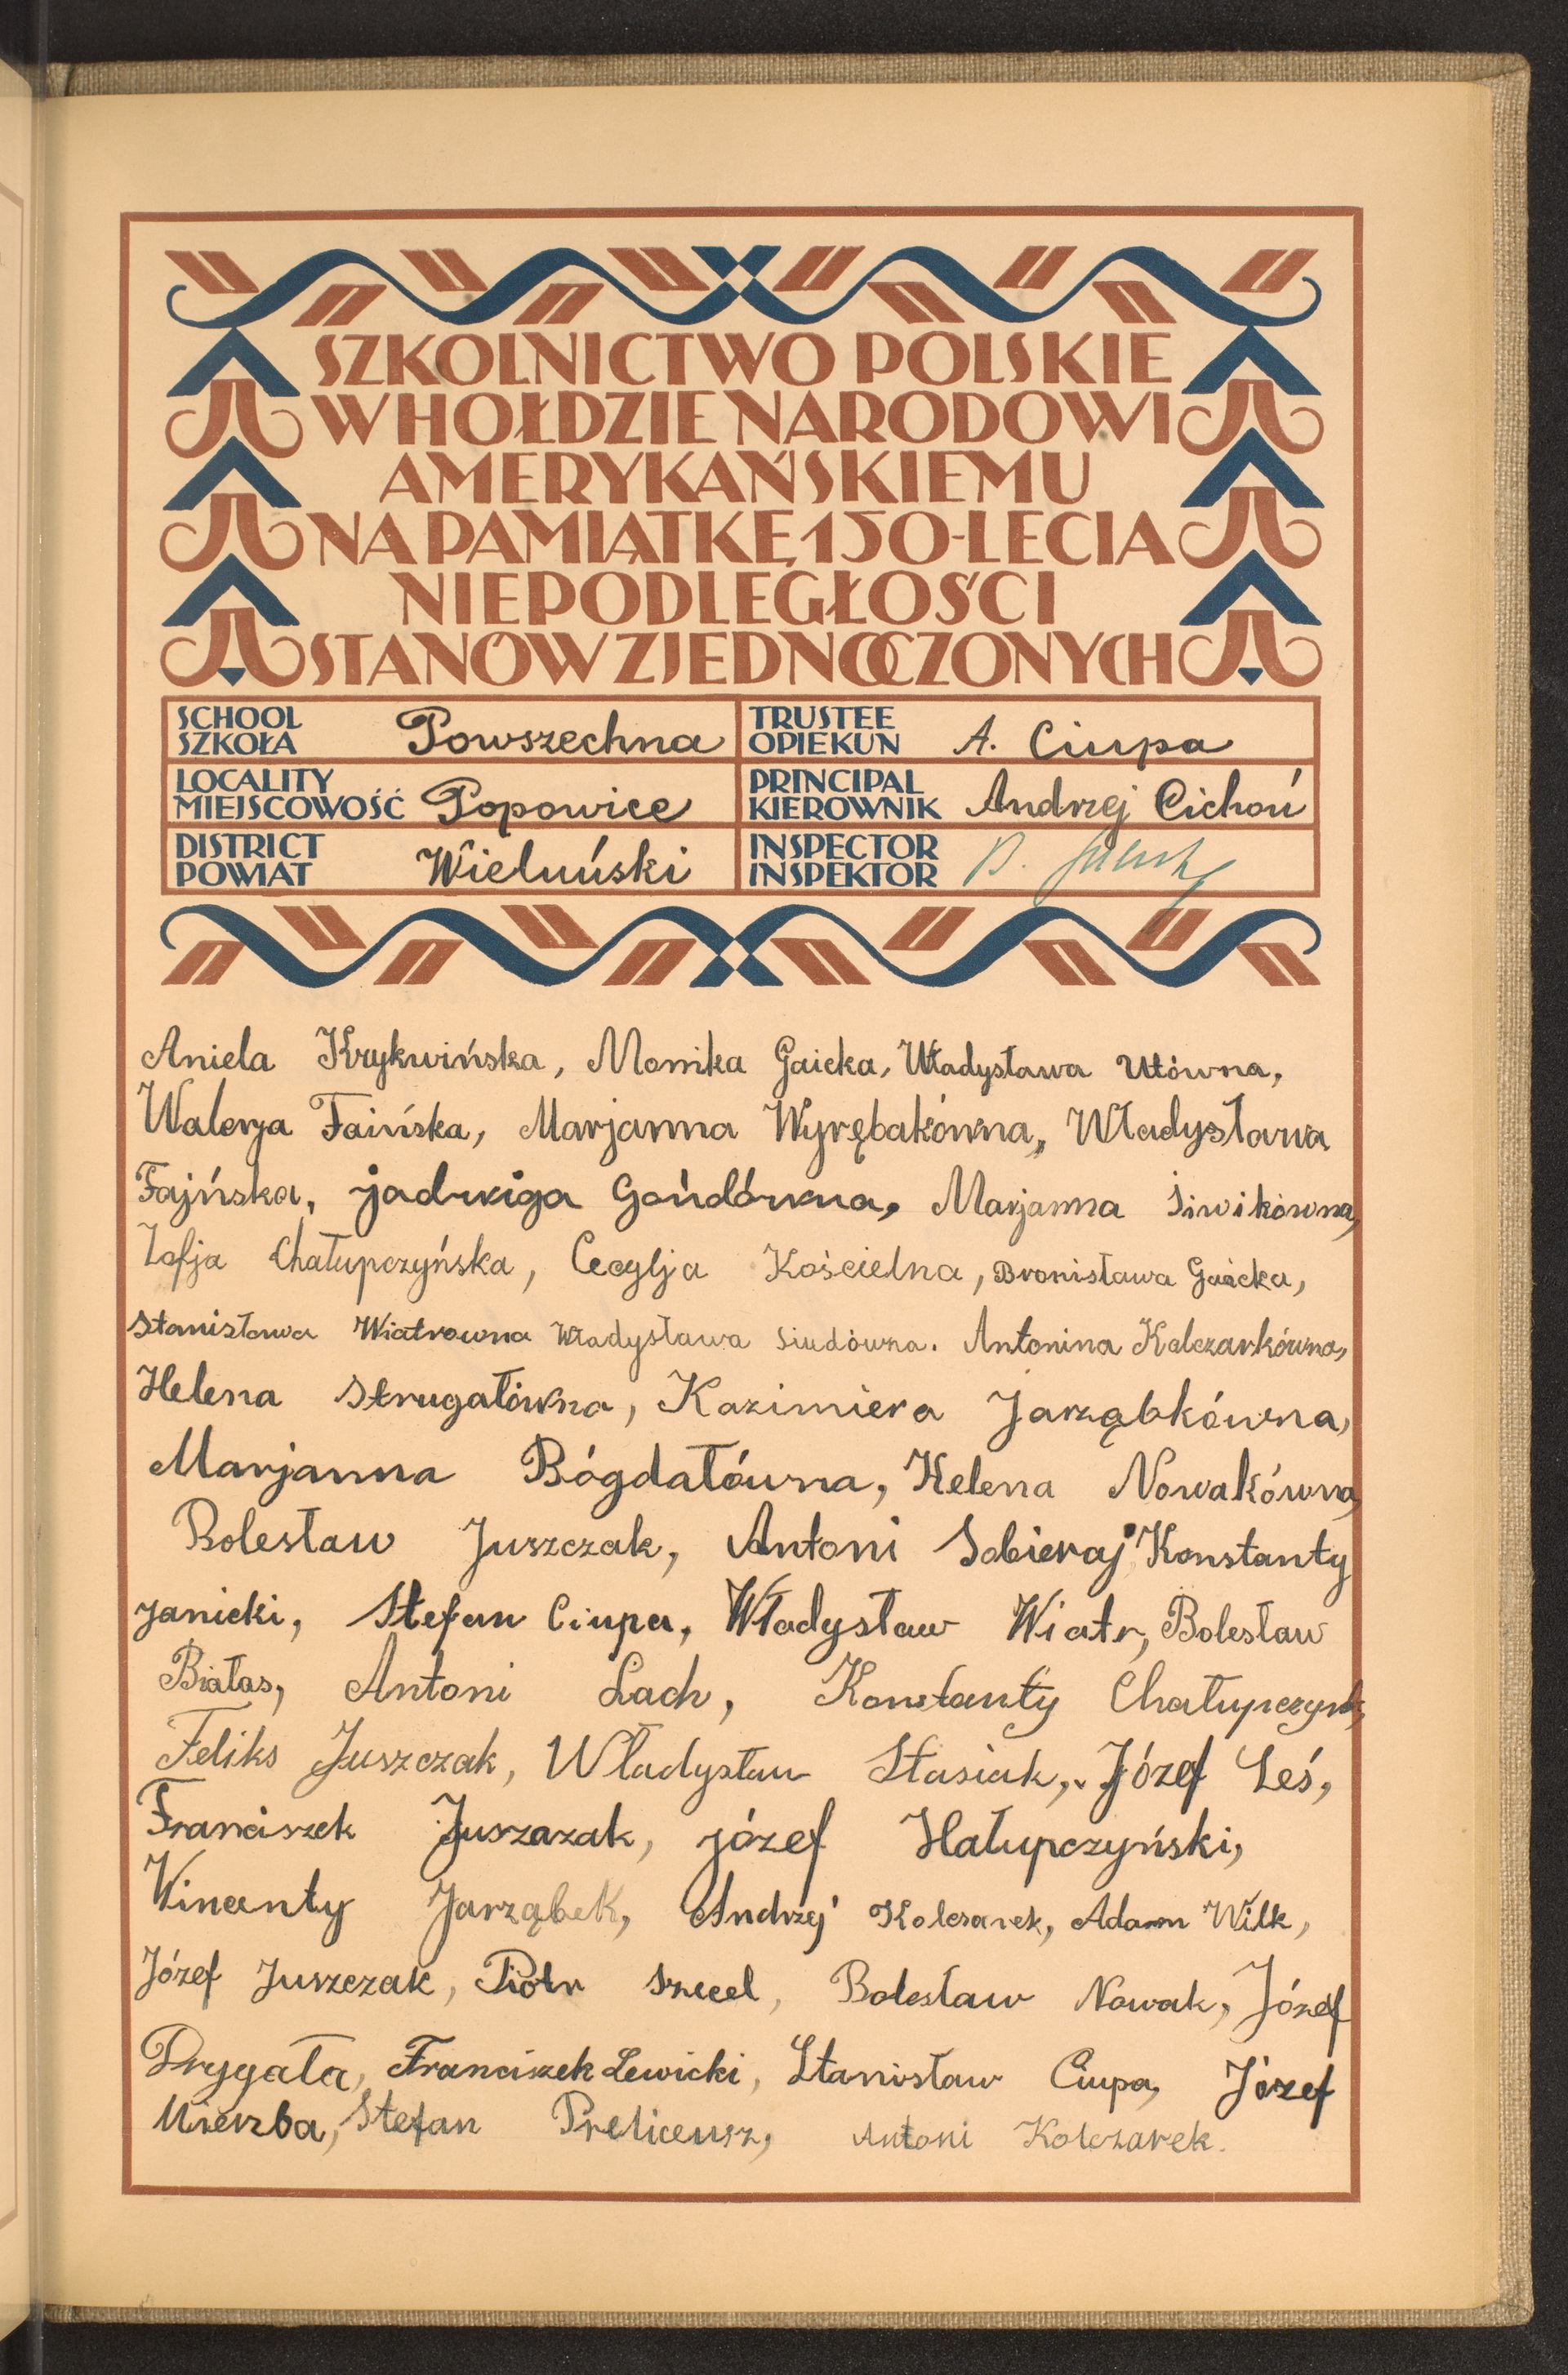 SZKOLNICTWO POLSKIE
W HOŁDZIE NARODOWI
AMERYKAŃSKIEMU
NA PAMIĄTKĘ 150-LECIA
NIEPODLEGŁOŚCI
STANÓW ZJEDNOCZONYCH
SCHOOL
SZKOŁA Powszechna
TRUSTEE
OPIEKUN A. Ciupa
LOCALITY
MIEJSCOWOŚĆ Popowice
PRINCIPAL
KIEROWNIK Andrzej Cichoń
DISTRICT
POWIAT Wieluński
INSPECTOR
INSPEKTOR
Aniela Krykwińska, Monika Gaicka, Władysława Utówna,
Walerja Faińska, Marjanna Wyrębakówna, Władysława
Fajńska, jadwiga Gońdówna, Marjanna Siwikówna,
Zofja Chałupczyńska, Cecylja Kościelna, Bronisława Gaicka,
Stanisława Wiatrowna Władysława Siudówna. Antonina Kolczarkówna,
Helena Strugałówna, Kazimiera Jarząbkówna,
Marjanna Bógdałówna, Helena Nowakówna,
Bolesław Juszczak, Antoni Sobieraj, Konstanty
janicki, Stefan Ciupa, Władysław Wiatr, Bolesław
Białas, Antoni Lach, Konstanty
Feliks Juszczak, Władysław Stasiak, Józef Leś,
Franciszek Juszczak, józef Hałupczyński,
Wincenty Jarząbek, Andrzej Kolczarek, Adam Wilk,
Józef Juszczak, Piotr Bolesław Nowak, Józef
Drygała, Franciszek Lewicki, Stanisław Ciupa, Józef
Wierzba, Stefan Antoni Kolczarek.